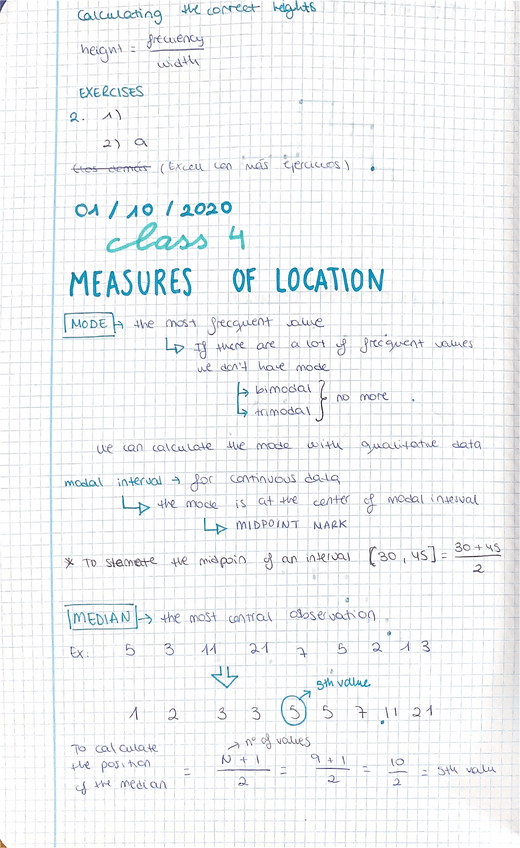 Calculating the correct heights
height = frecuency / width
EXERCISES
2. 1)
2) a
(Excell con más ejercicios)
01 / 10 / 2020
class 4
MEASURES OF LOCATION
MODE → the most frecquent value
↳ If there are a lot of frecquent values
we don't have mode
↳ bimodal
↳ trimodal } no more
we can calculate the mode with qualitative data
modal interval → for continuous data
↳ the mode is at the center of modal interval
↳ MIDPOINT MARK
* To the midpoin of an interval [30, 45] = 30 + 45 / 2
MEDIAN → the most central observation
Ex: 5 3 11 21 7 5 2 1 3
5th value
1 2 3 3 5 5 7 11 21
→ nº of values
To calculate the position of the median = N + 1 / 2 = 9 + 1 / 2 = 10 / 2 = 5th valu